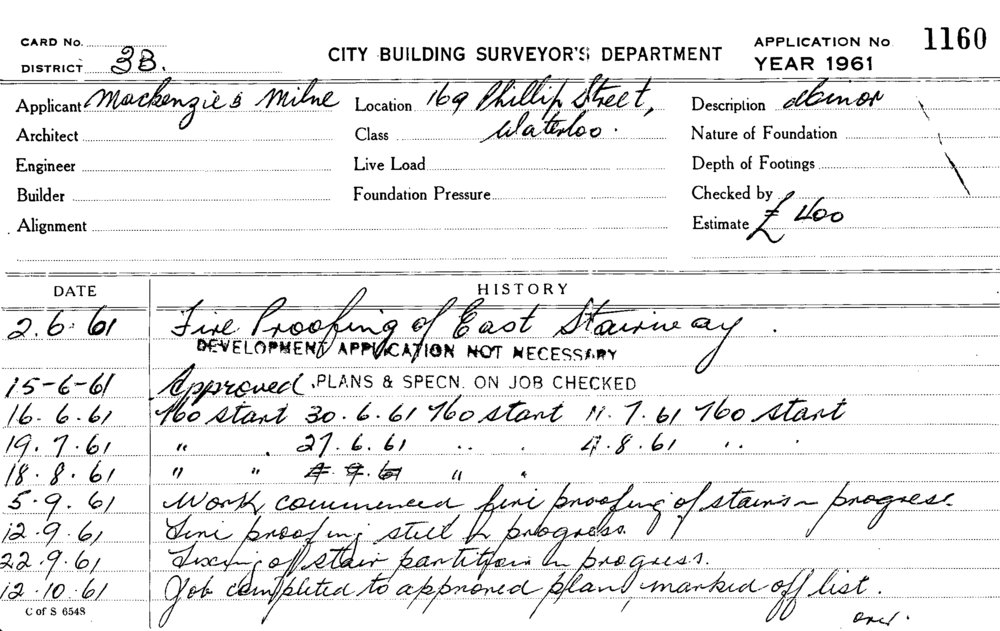 CARD No.
DISTRICT 3B.
CITY BUILDING SURVEYOR'S DEPARTMENT
APPLICATION No 1160
YEAR 1961
Applicant Mackenzie & Milne Location 169 Phillip Street, Description Minor
Architect Class Waterloo. Nature of Foundation
Engineer Live Load Depth of Footings
Builder Foundation Pressure Checked by
Alignment Estimate £400
DATE HISTORY
2.6.61 Fire Proofing of East Stairway.
DEVELOPMENT APPLICATION NOT NECESSARY
15-6-61 Approved. PLANS & SPECN. ON JOB CHECKED
16.6.61 No start 30.6.61 No start 11.7.61 No start
19.7.61 " . 27.6.61 .. . 4.8.61 .. .
18.8.61 " " " "
5.9.61 Work commenced fire proofing of stairs in progress.
12.9.61 Fire proofing still in progress.
22.9.61 Fixing of stair partition in progress.
12.10.61 Job completed to approved plan, marked off list.
C of S 6548
over.